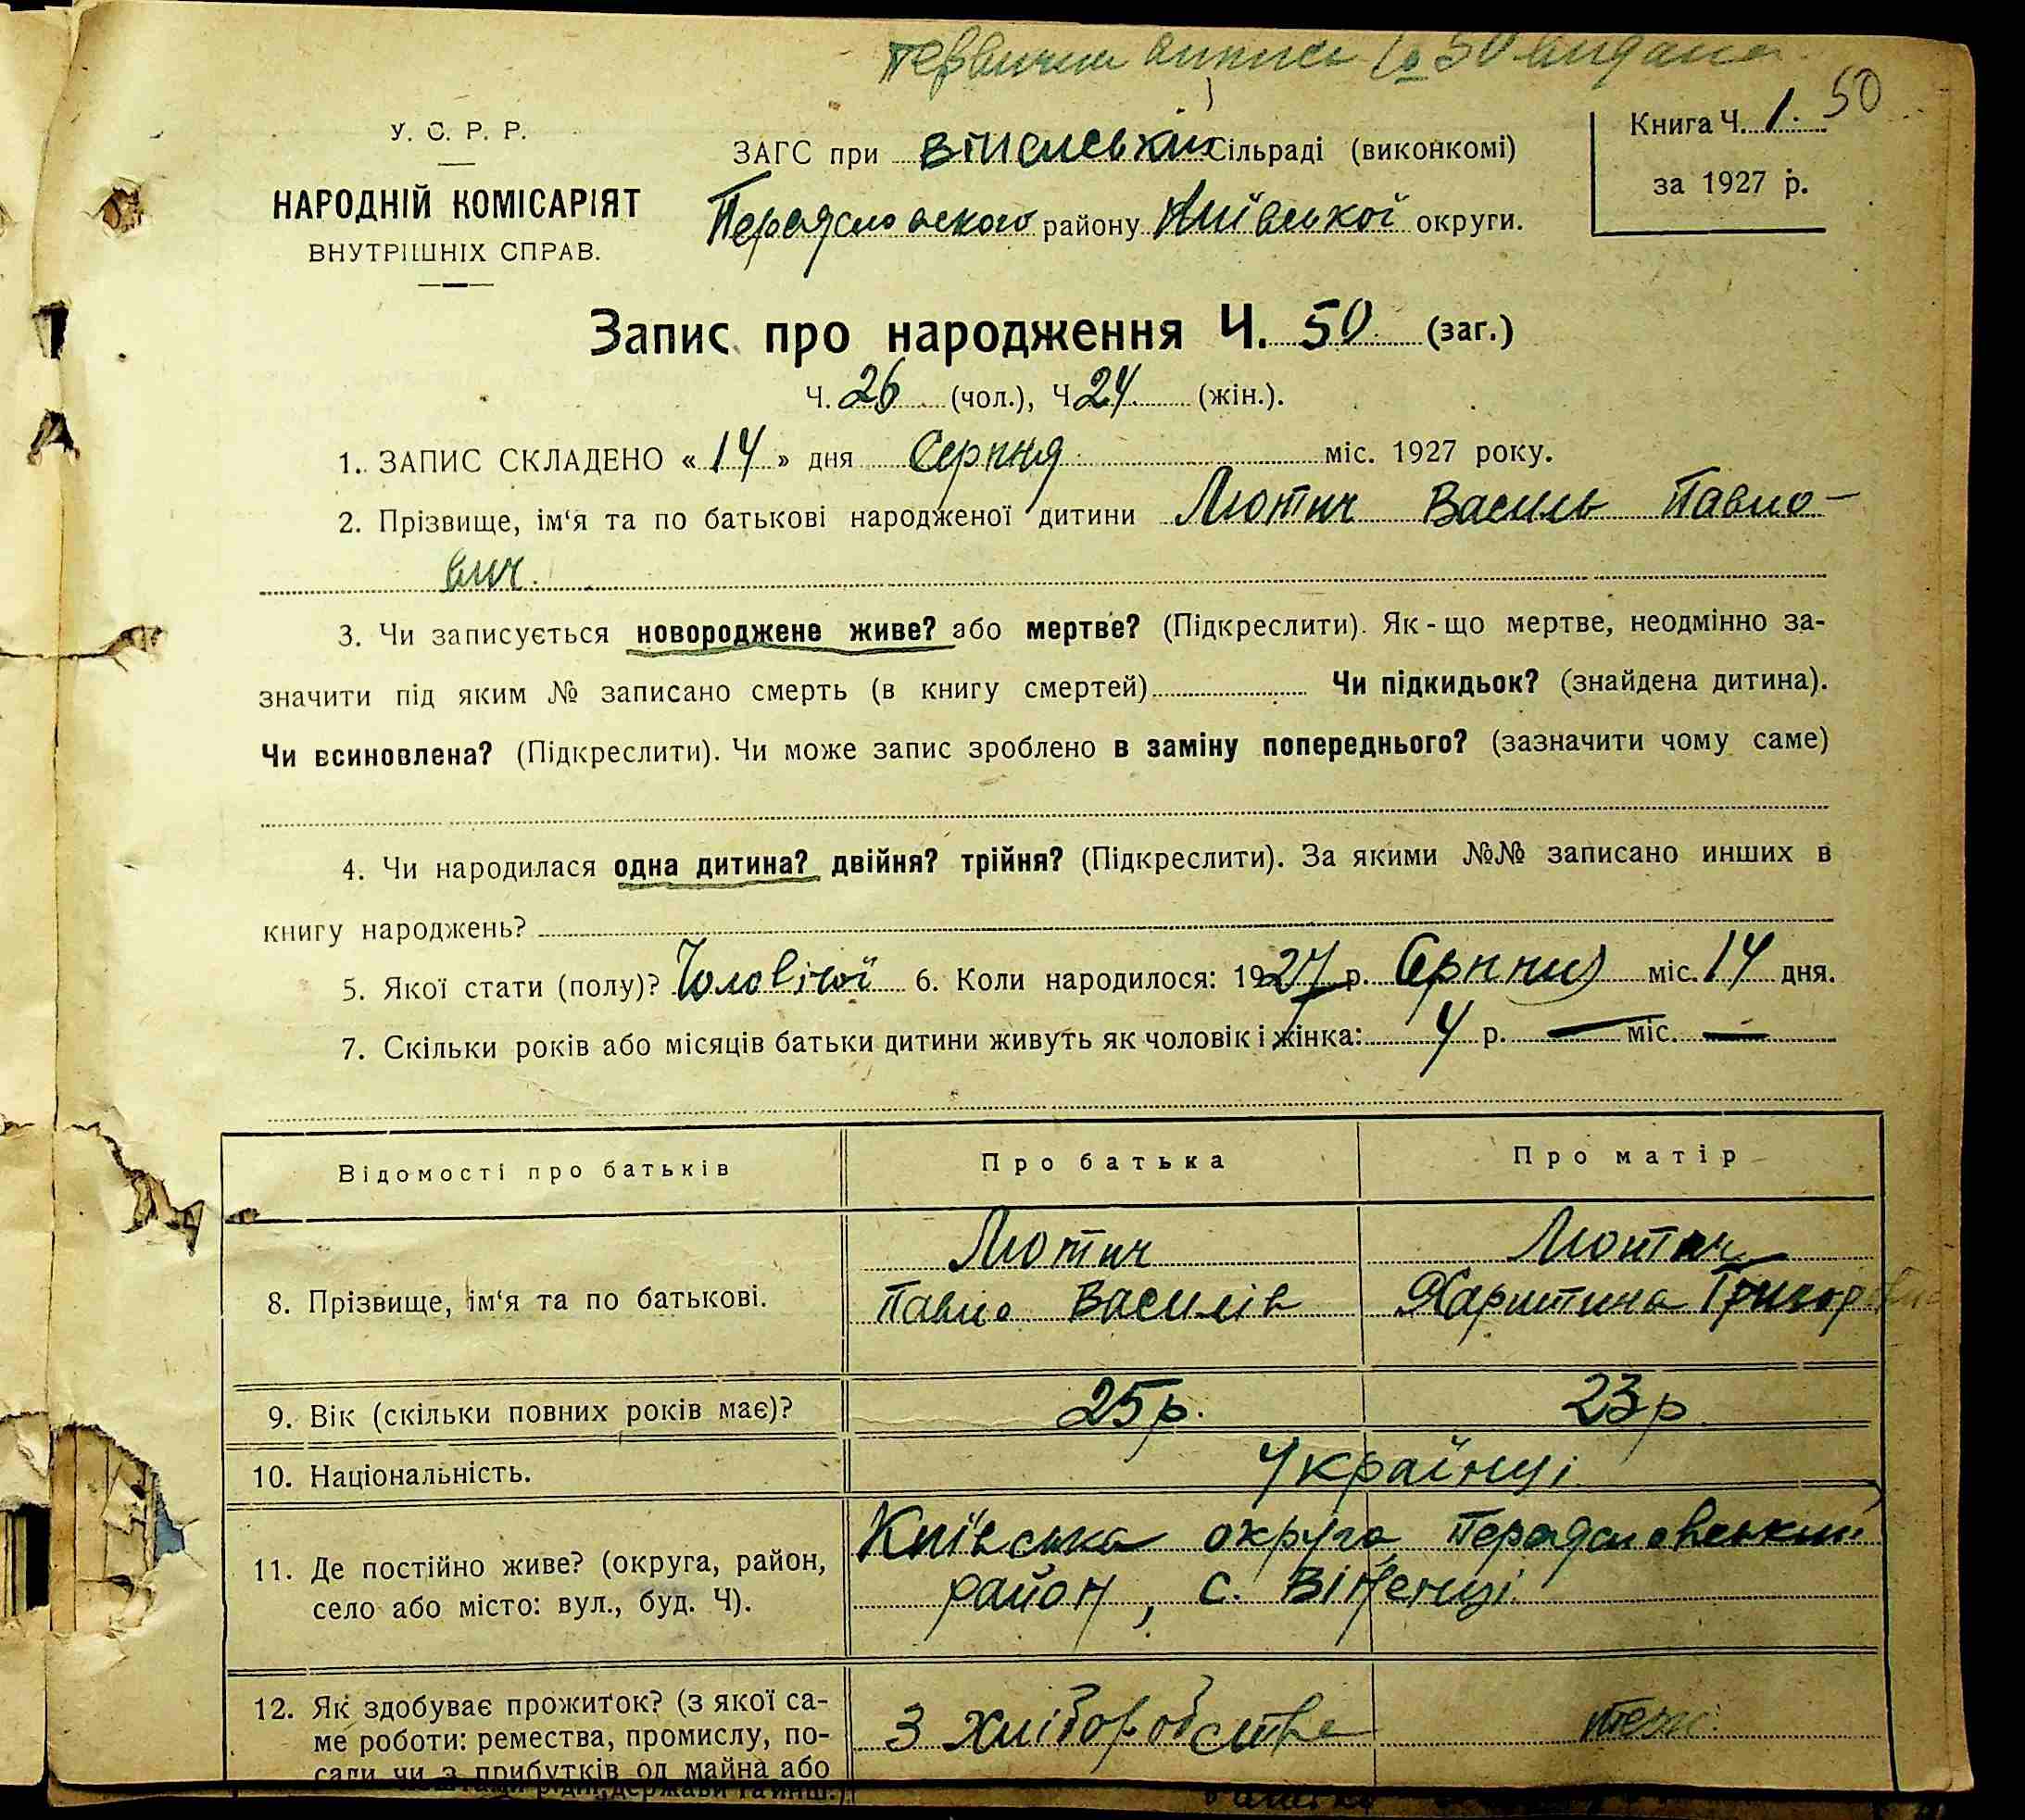 Первична випись № 50 видана
50
У. С. Р. Р.
НАРОДНІЙ КОМІСАРІЯТ
ВНУТРІШНІХ СПРАВ.
ЗАГС при Сільраді (виконкомі)
Переяславского району Київської округи.
Книга Ч. 1.
за 1927 р.
Запис про народження Ч. 50 (заг.)
Ч. 26 (чол.), Ч 24 (жін.).
1. ЗАПИС СКЛАДЕНО « 14 » дня Серпня міс. 1927 року.
2. Прізвище, ім‘я та по батькові народженої дитини Лютич Василь Павло-
вич.
3. Чи записується новороджене живе? або мертве? (Підкреслити). Як-що мертве, неодмінно за-
значити під яким № записано смерть (в книгу смертей) Чи підкидьок? (знайдена дитина).
Чи всиновлена? (Підкреслити). Чи може запис зроблено в заміну попереднього? (зазначити чому саме)
4. Чи народилася одна дитина? двійня? трійня? (Підкреслити). За якими №№ записано инших в
книгу народжень?
5. Якої стати (полу)? Чоловічої 6. Коли народилося: 1927 р. Серпня міс. 14 дня.
7. Скільки років або місяців батьки дитини живуть як чоловік і жінка: 4 р. — міс. —
Відомості про батьків Про батька Про матір
Лютич Лютич
8. Прізвище, ім‘я та по батькові. Павло Василів Харитина Григор
9. Вік (скільки повних років має)? 25 р. 23 р
10. Національність. Українці
11. Де постійно живе? (округа, район, Київська округа, Переяславський
село або місто: вул., буд. Ч). район, с. Віненці
12. Як здобуває прожиток? (з якої са-
ме роботи: ремества, промислу, по- З хліборобства теж.
сади чи з прибутків од майна або